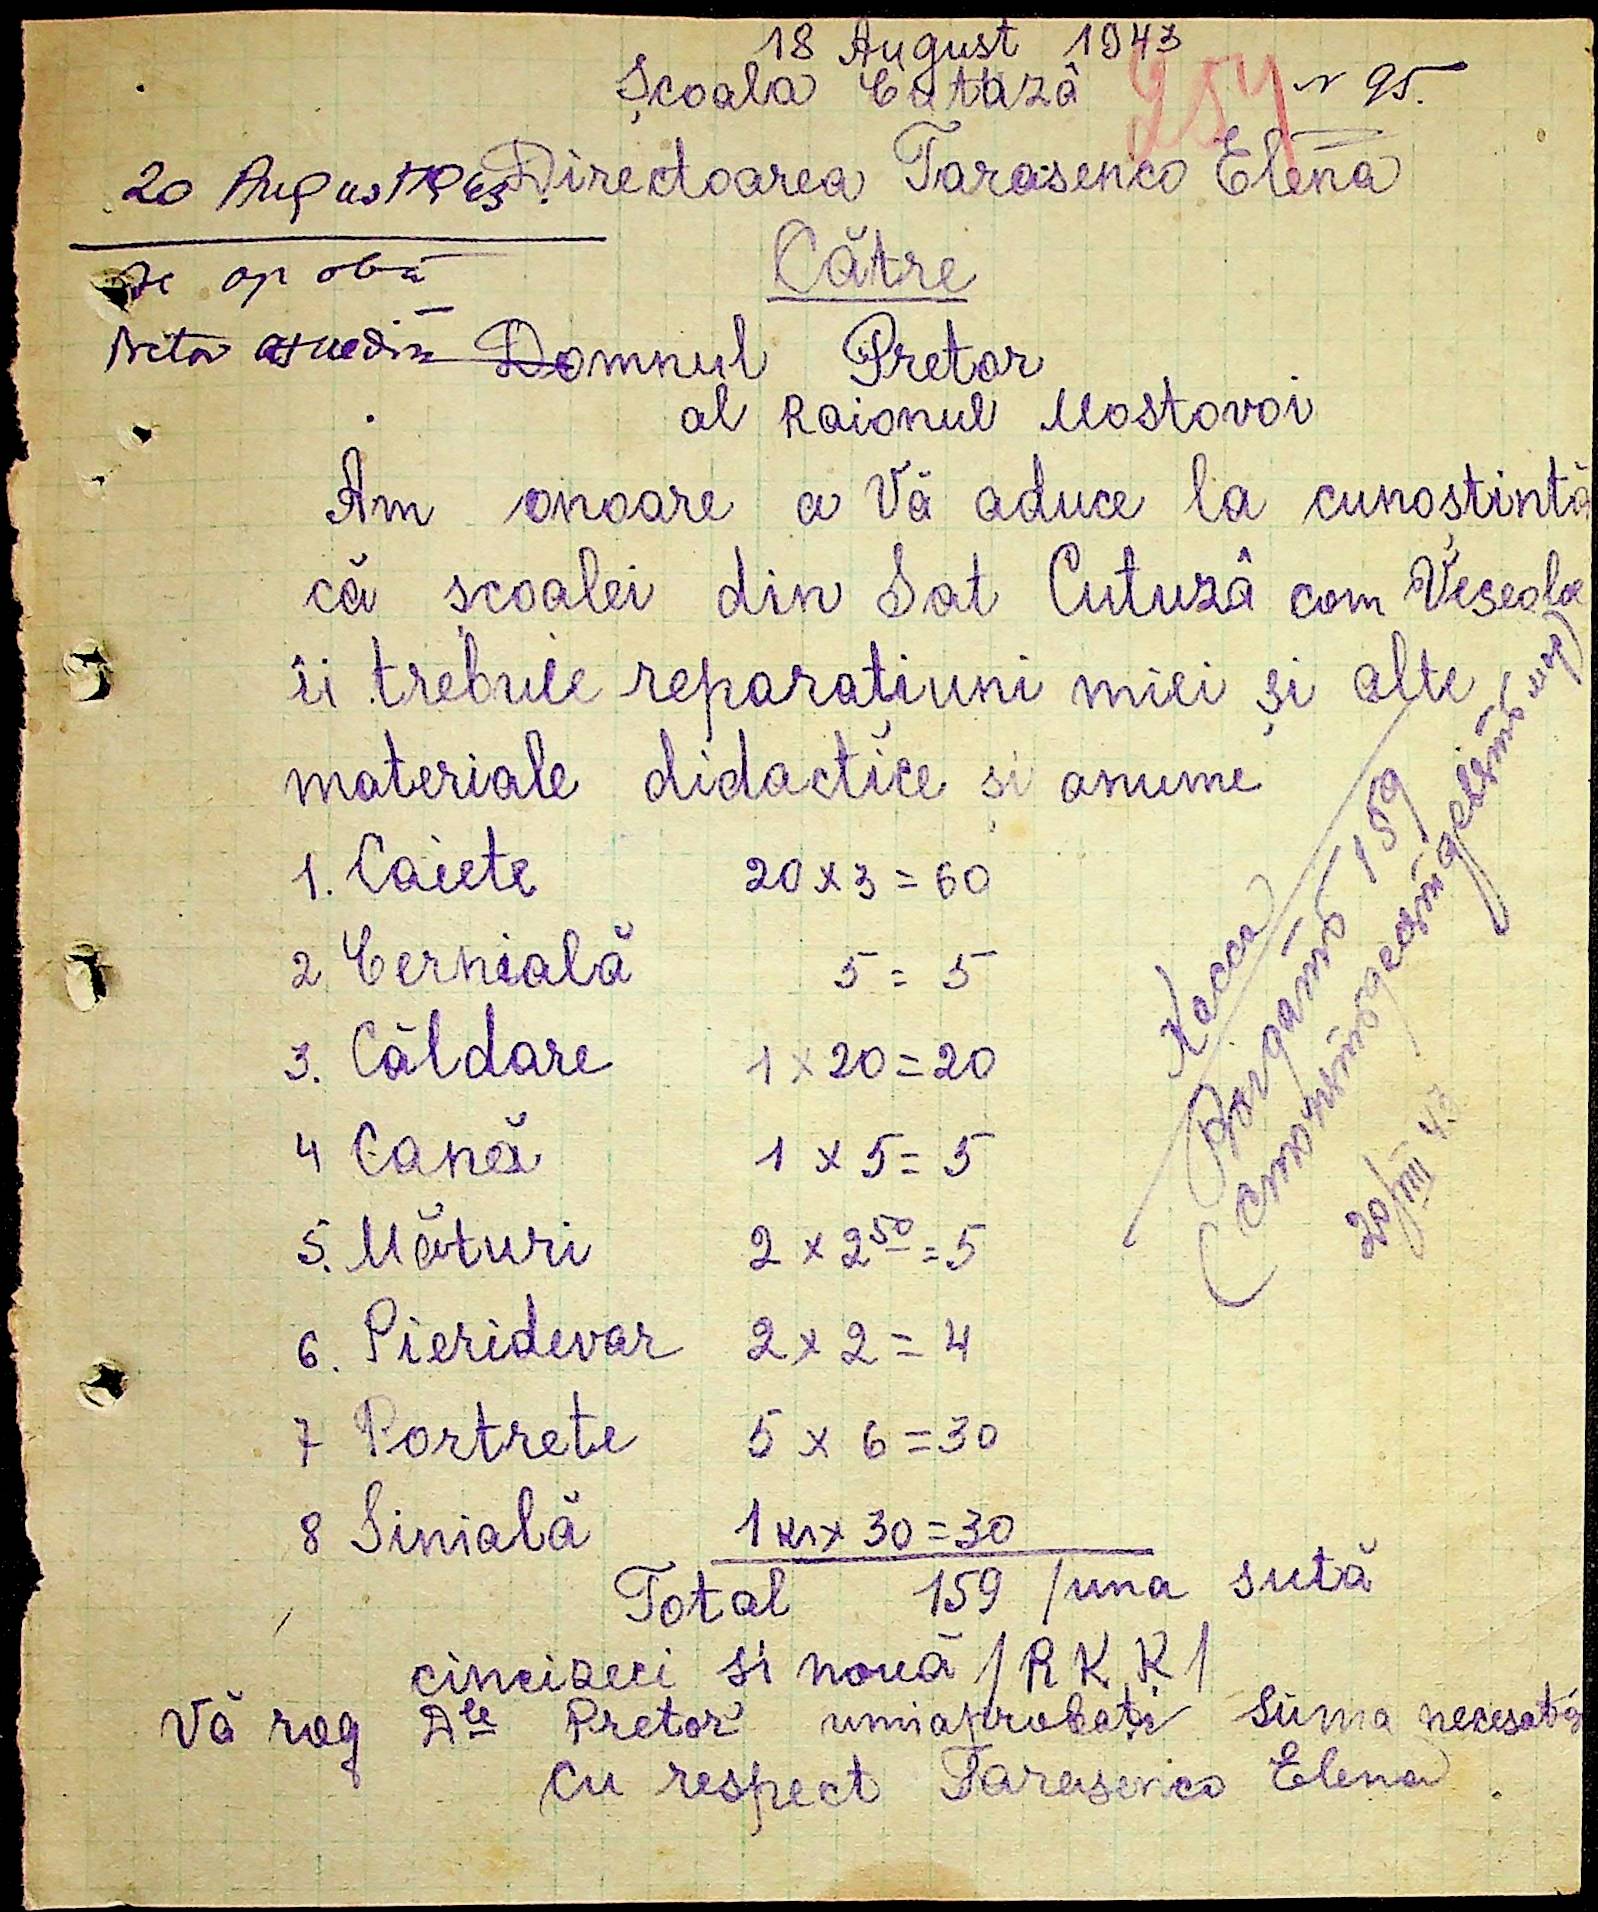 18 August 1943
Școala Cutuzâ
254
N 95.
Directoarea Tarasenco Elena
20 August 1943
Se aprobă
Către
Pretor
Domnul Pretor
al Raionul Mostovoi
Am onoare a Vă aduce la cunoștință
că școalei din Sat Cutuzâ com Veseola
îi trebuie reparațiuni mici și alte
materiale didactice și anume
1. Caiete 20 x 3 = 60
2 Cernială 5 = 5
3. Căldare 1 x 20 = 20
4 Cană 1 x 5 = 5
5. Mături 2 x 2 50 = 5
6. Pieridevar 2 x 2 = 4
7 Portrete 5 x 6 = 30
8 Sinială 1 x 30 = 30
Total 159 /una sută
cincizeci si nouă / R K K /
Vă rog Dle Pretor umiaprobați Suma necesată
Cu respect Tarasenco Elena
Касса
Выдать 159
(сто пятьдесят девять кр)
20/VIII 43